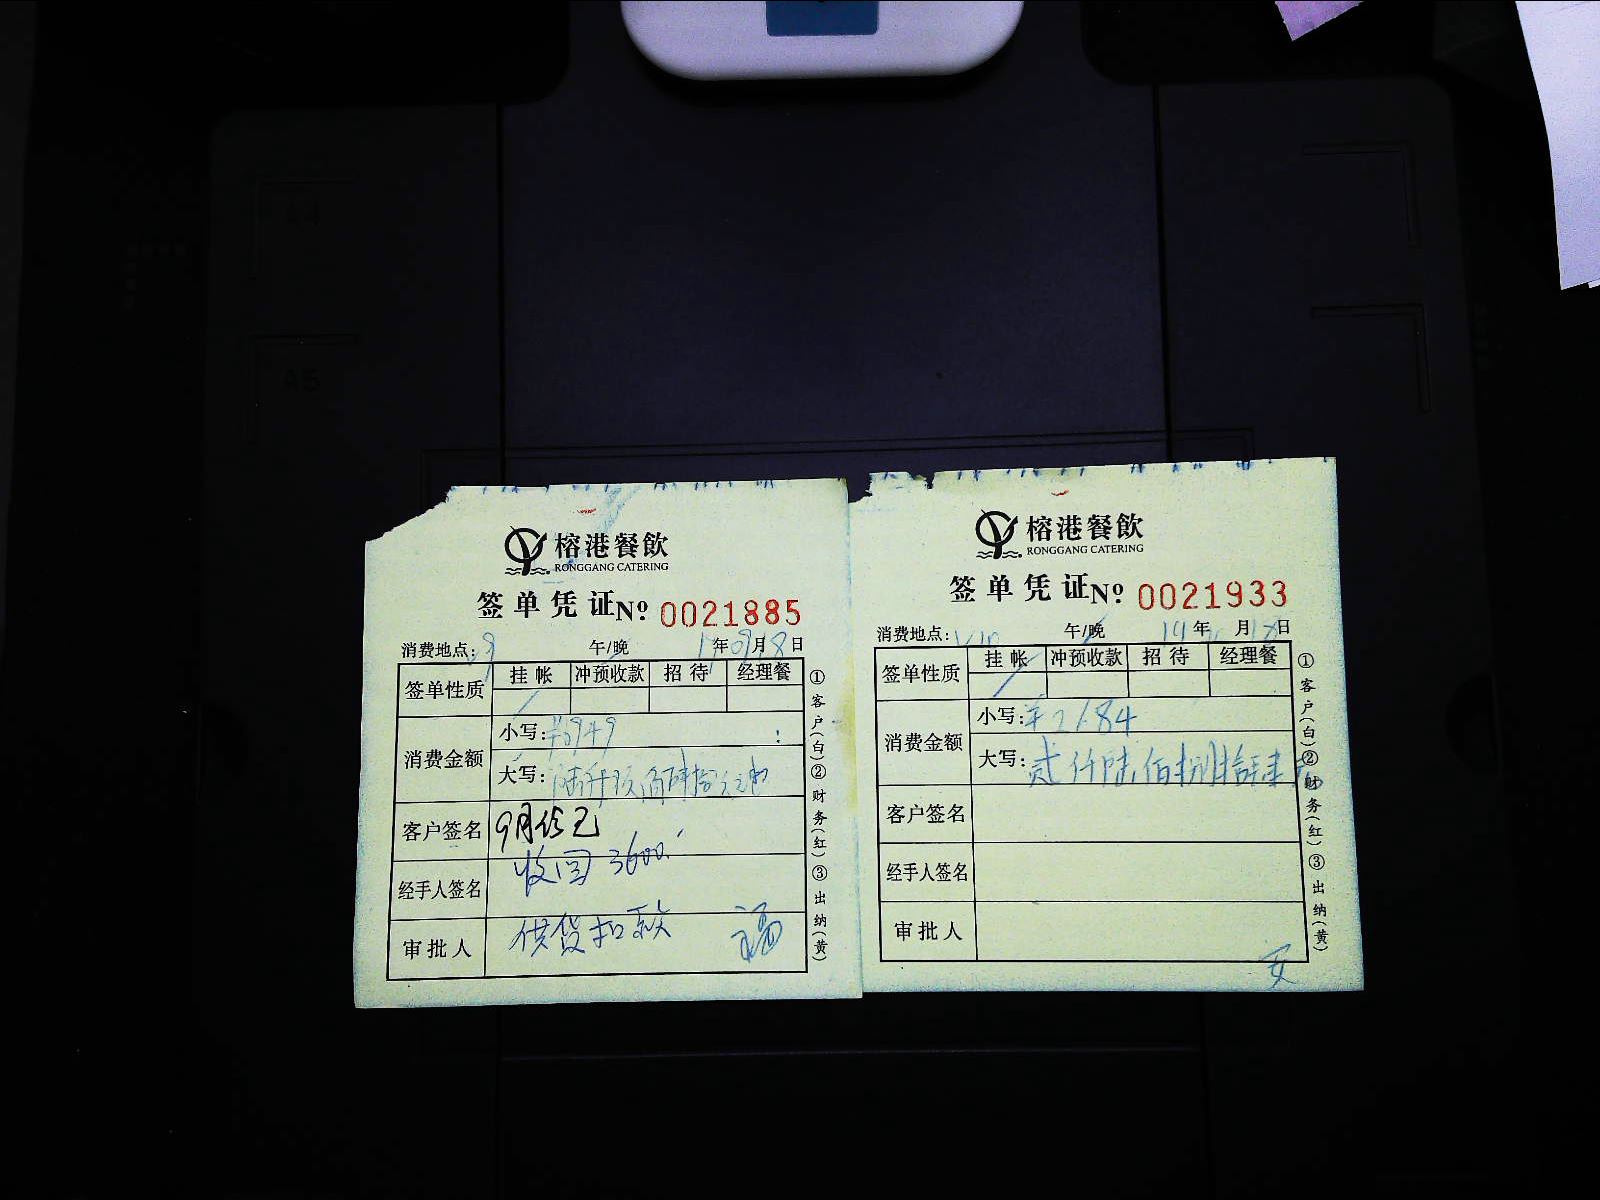 A4
A5
榕港餐飲
RONGGANG CATERING
签单凭证 No 0021885
消费地点: 午/晚 年 月 日
签单性质 挂帐 冲预收款 招待 经理餐
消费金额
小写:
大写:
客户签名 9月
经手人签名 收回3600
审批人 供货扣款
①客户(白)②财务(红)③出纳(黄)
榕港餐飲
RONGGANG CATERING
签单凭证 No 0021933
消费地点: 午/晚 年 月 日
签单性质 挂帐 冲预收款 招待 经理餐
消费金额
小写:
大写: 贰仟陆佰捌拾肆
客户签名
经手人签名
审批人
①客户(白)②财务(红)③出纳(黄)